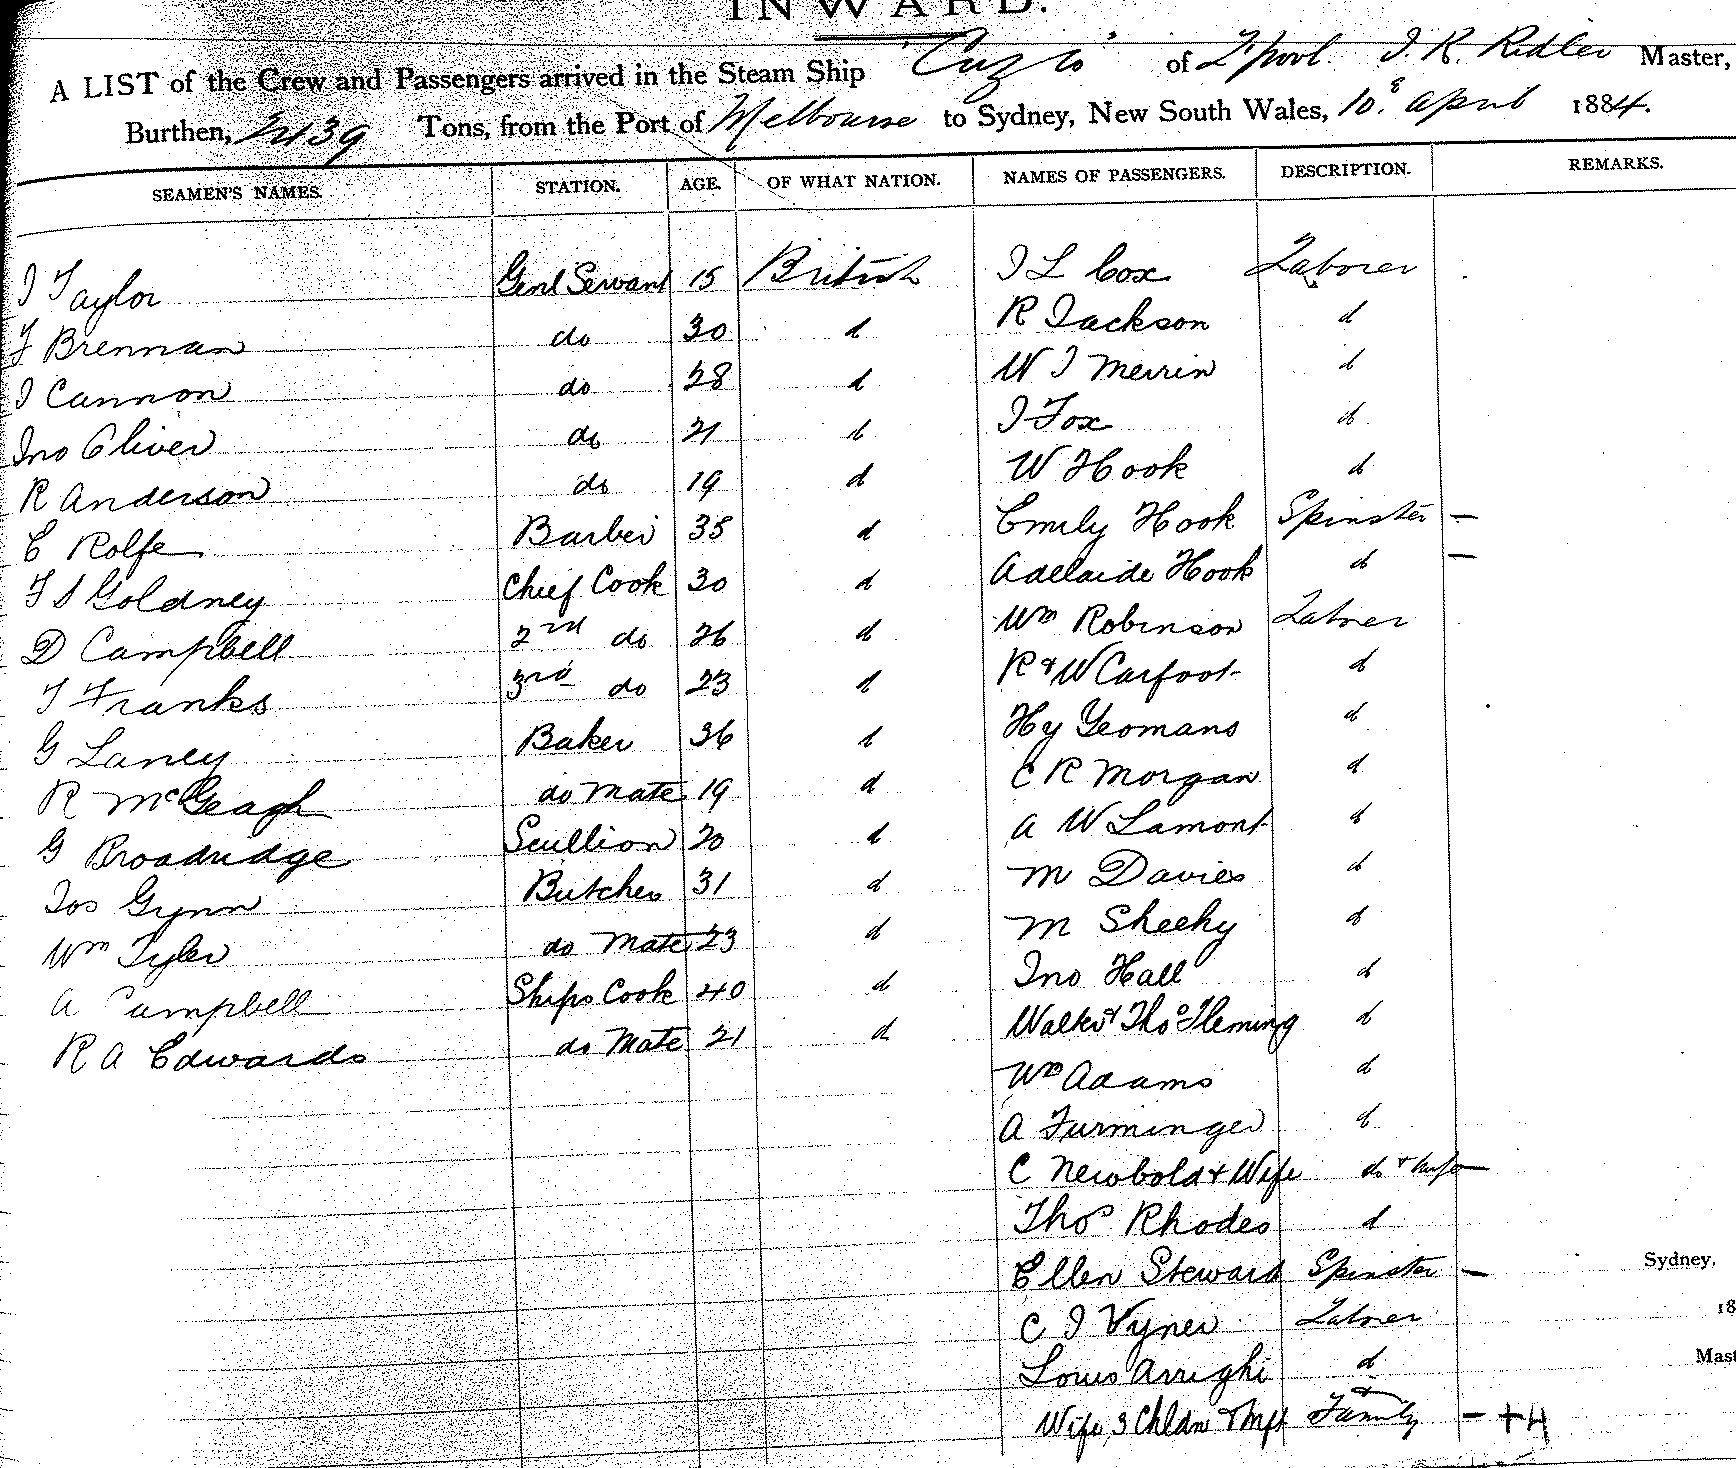 INWARD.
A LIST of the Crew and Passengers arrived in the Steam Ship "Cuzco" of L'pool. J. R. Ridler Master,
Burthen, 2439 Tons, from the Port of Melbourne to Sydney, New South Wales, 10th April 1884.
SEAMEN'S NAMES. STATION. AGE. OF WHAT NATION. NAMES OF PASSENGERS. DESCRIPTION. REMARKS.
J Taylor Genl Servant 15 British J L Cox Laborer
F Brennan do 30 d R Jackson d
J Cannon do 28 d W J Merrin d
Jno Oliver do 21 d J Fox d
R Anderson do 19 d W Hook d
C Rolfe Barber 35 d Emily Hook Spinster —
F S Goldney Chief Cook 30 d Adelaide Hook d —
D Campbell 2nd do 26 d Wm Robinson Laborer
T Franks 3rd do 23 d R & W Carfoot d
G Laney Baker 36 d Hy Yeomans d
R McGeagh do Mate 19 d C R Morgan d
G Broadridge Scullion 20 d A W Lamont d
Jos Gynn Butcher 31 d M Davies d
Wm Tyler do Mate 23 d M Sheehy d
A Campbell Ships Cook 40 d Jno Hall d
R A Edwards do Mate 21 d Walter & Thos Fleming d
Wm Adams d
A Furminger d
C Newbold & Wife do & Wife —
Thos Rhodes d
Ellen Steward Spinster —
Sydney,
C J Vyner Laborer
18
Louis Arrighi d
Mast
Wife, 3 Chldn & Inft & Family — + 4